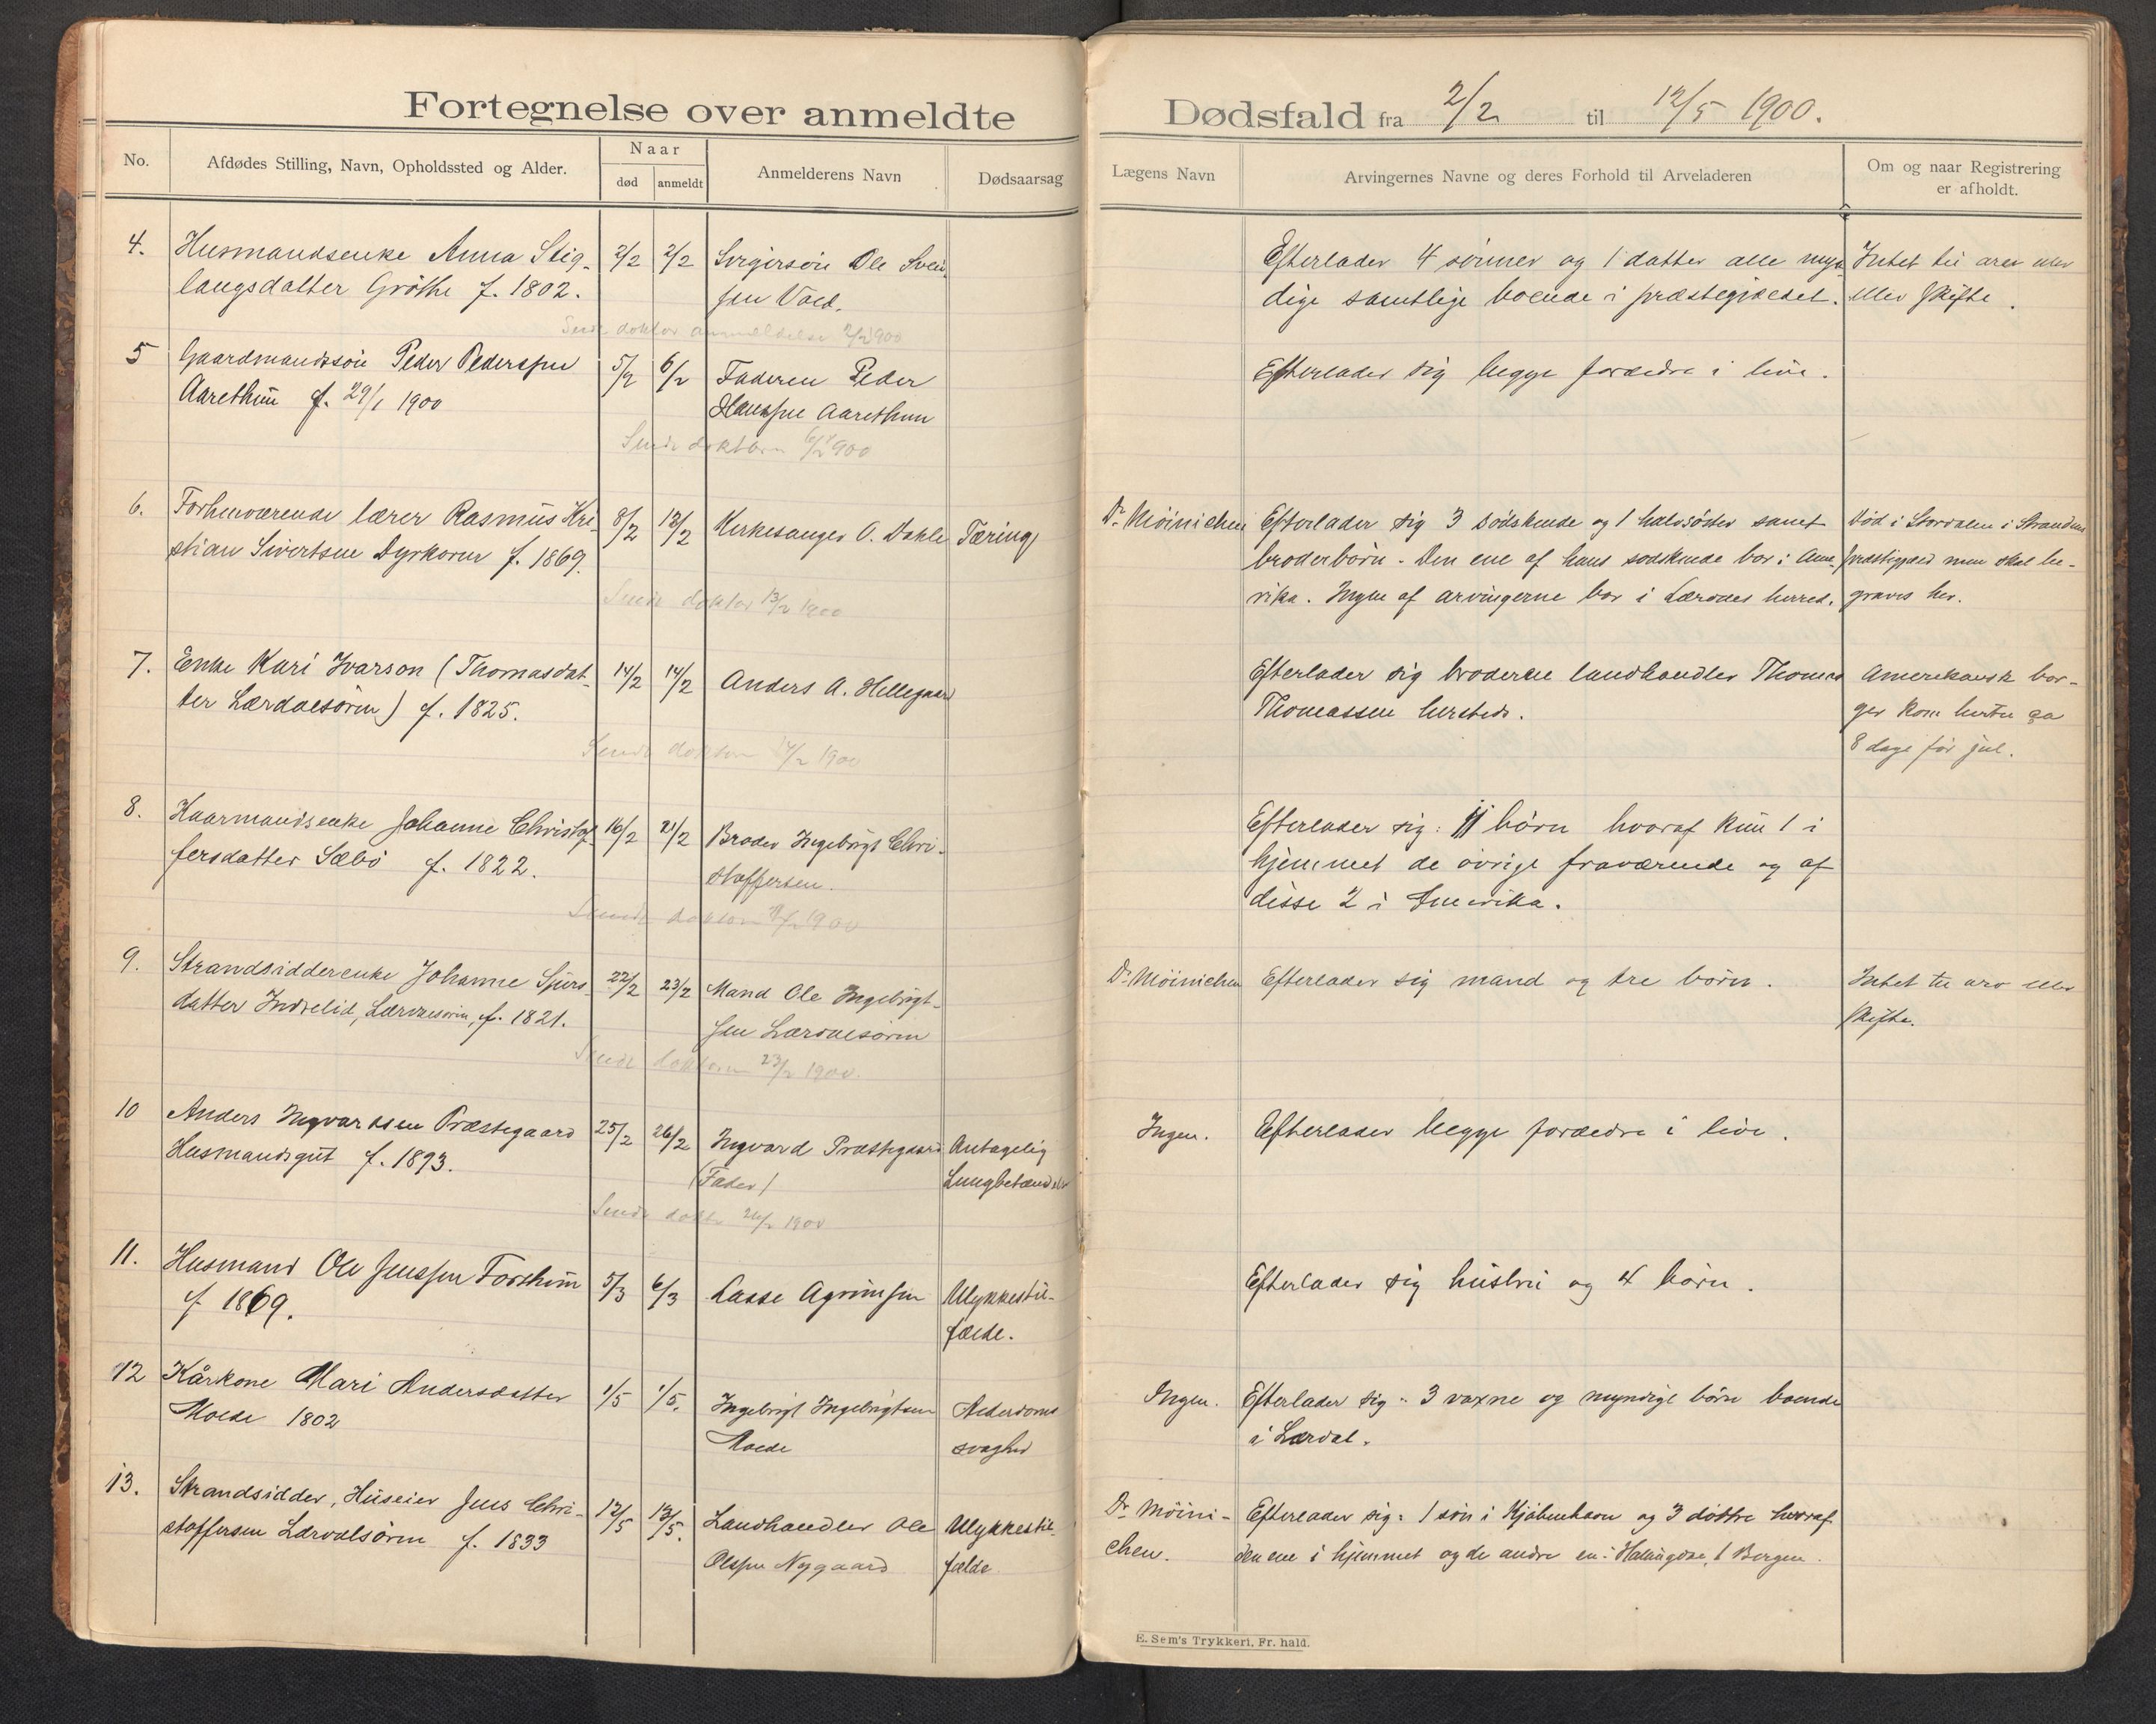 Fortegnelse over anmeldte
Dødsfald fra 2/2 til 12/5 1900.
No.
Afdødes Stilling, Navn, Opholdssted og Alder.
Naar
død
anmeldt
Anmelderens Navn
Dødsaarsag
Lægens Navn
Arvingernes Navne og deres Forhold til Arveladeren
Om og naar Registrering
er afholdt.
4. Husmandsenke Anna Stig- 2/2 2/2 Ole Svein- Efterlader 4 sønner og 1 datter alle myn- Intet til arv eller
langsdatter Grøthe f. 1802. sen Vold. dige samtlige boende i præstegjeldet. eller skifte.
Sendt doktor anmeldelse 2/2 900
5 Gaardmandssøn Peder Pedersen 5/2 6/2 Faderen Peder Efterlader sig begge forældre i live.
Aarethun f. 29/1 1900 Hanssen Aarethun
Sendt doktoren 6/2 900
6. Forhenværende lærer Rasmus Kri- 8/2 13/2 Kirkesanger O. Dahle Tæring Dr. Möinichen Efterlader sig 3 södskende og 1 halvsöster samt Död i Stordalen i Strandens
stian Sivertsen Dyrkorn f. 1869. broderbörn. Den ene af hans sodskende bor i Ame- præstegjeld men skal be-
rika. Ingen af arvingerne bor i Lærdals herred. graves her.
Sendt doktor 13/2 1900
7. Enke Kari Ivarson (Thomasdat- 14/2 14/2 Anders A. Hellegaard Efterlader sig broderen landhandler Thomas Amerikansk bor-
ter Lærdalsören) f. 1825. Thomassen hersteds. ger kom hertil ca
8 dage för jul.
Sendt doktoren 14/2 1900
8. Kaarmandsenke Johanne Christof- 16/2 21/2 Broder Ingebrigt Chri- Efterlader sig: börn hvoraf kun 1 i
fersdatter Sæbö f. 1822. stoffersen. hjemmet de övrige fraværende og af
disse 2 i Amerika.
Sendt doktoren 1900
9. Strandsidderenke Johanne Sjurs- 22/2 23/2 Mand Ole Ingebrigt- Dr. Möinichen Efterlader sig mand og tre börn. Intet til arv eller
datter Indrelid, Lærdalsören, f. 1821. sen Lærdalsören skifte.
Sendt doktoren 23/2 1900.
10 Anders Ingvardsen Præstegaard 25/2 26/2 Ingvard Præstegaard Antagelig Ingen. Efterlader begge forældre i live.
Husmandsgut f. 1893. (Fader) Lungbetændelse
Sendt doktor 26/2 1900
11. Husmand Ole Jenssen Torshun 5/3 6/3 Lasse Agrimsen Ulykkestil- Efterlader sig hustru og 4 börn.
f 1869. fælde.
12 Kårkone Mari Andersdatter 1/5 1/5. Ingebrigt Ingebrigtsen Alderdoms Ingen. Efterlader sig: 3 voxne og myndige börn boende
Molde 1802 Molde svaghed i Lærdal.
13. Strandsidder, Huseier Jens Chri- 12/5 13/5. Landhandler Ole Ulykkestil- Dr. Möini- Efterlader sig: 1 sön i Kjöbenhavn og 3 döttre hvoraf
stoffersen Lærdalsören f. 1833 Olssen Nygaard fælde chen. den ene i hjemmet og de andre en i Hallingdal, 1 Bergen.
E. Sem's Trykkeri, Fr. hald.